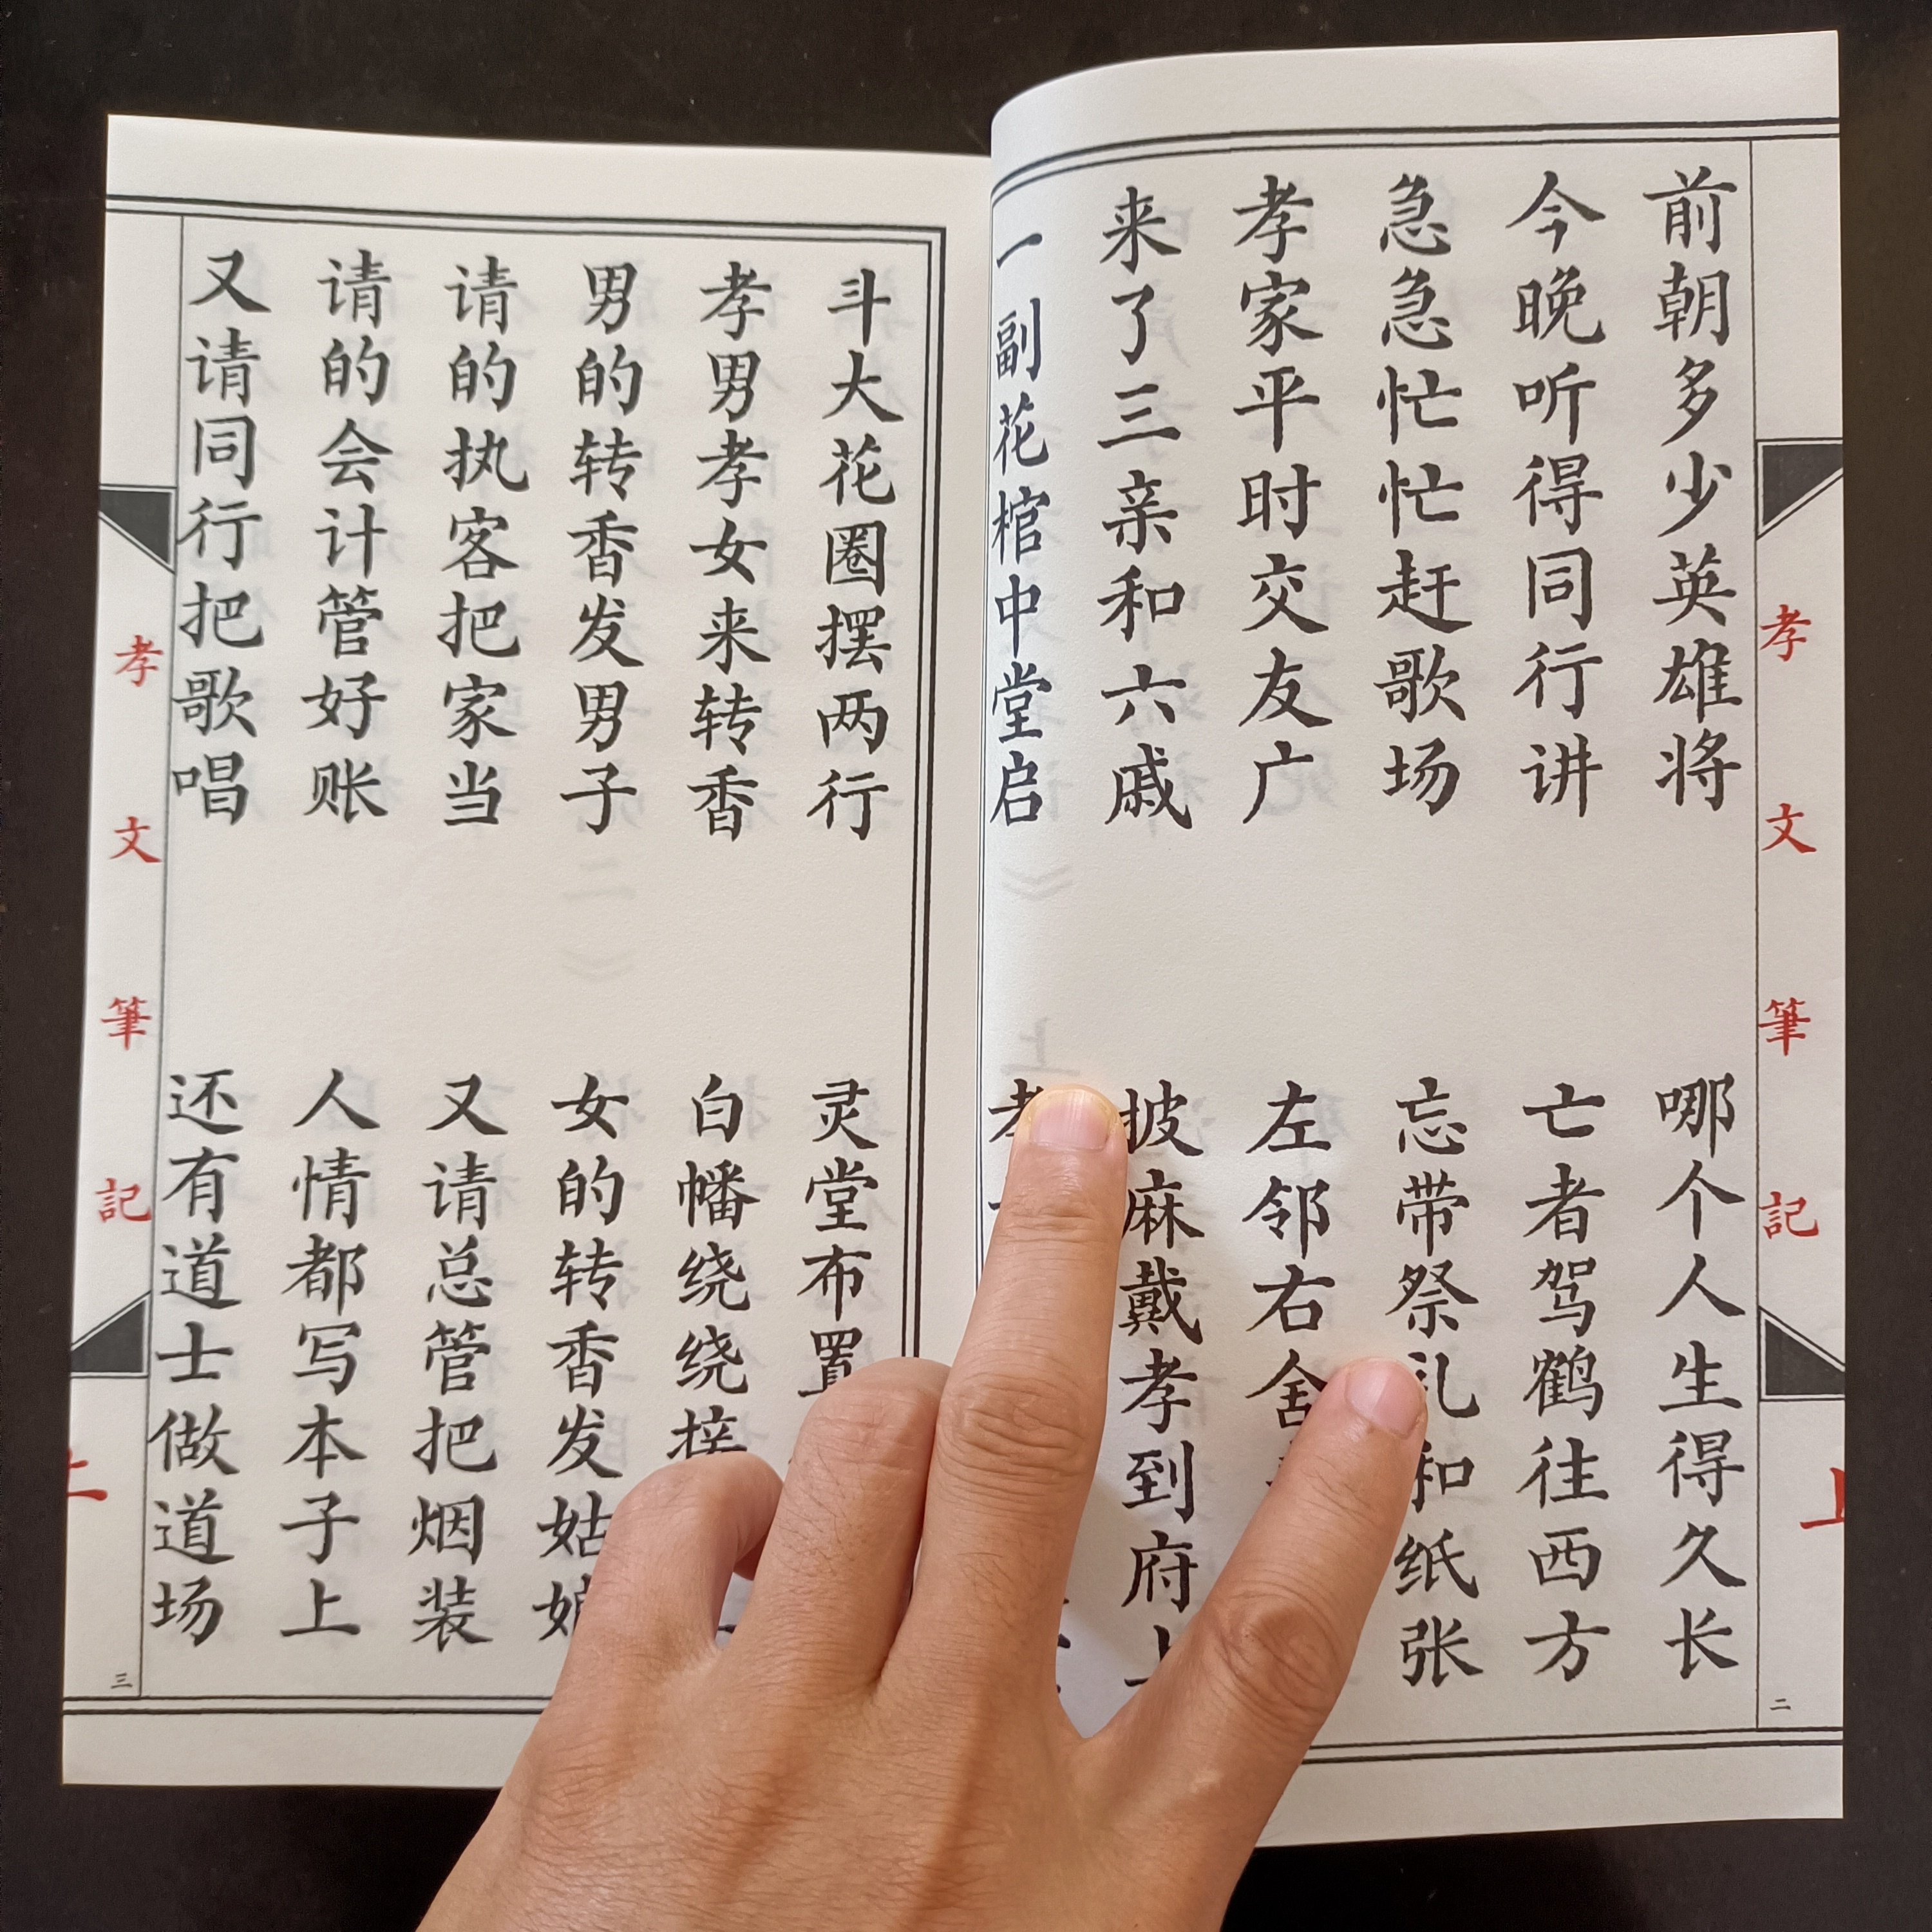 孝文筆記
上
二
前朝多少英雄将 哪个人生得久长
今晚听得同行讲 亡者驾鹤往西方
急急忙忙赶歌场 忘带祭礼和纸张
孝家平时交友广 左邻右舍
来了三亲和六戚 披麻戴孝到府上
一副花棺中堂启 孝
斗大花圈摆两行 灵堂布置
孝男孝女来转香 白幡绕绕接
男的转香发男子 女的转香发姑娘
请的执客把家当 又请总管把烟装
请的会计管好账 人情都写本子上
又请同行把歌唱 还有道士做道场
孝文筆記
上
三